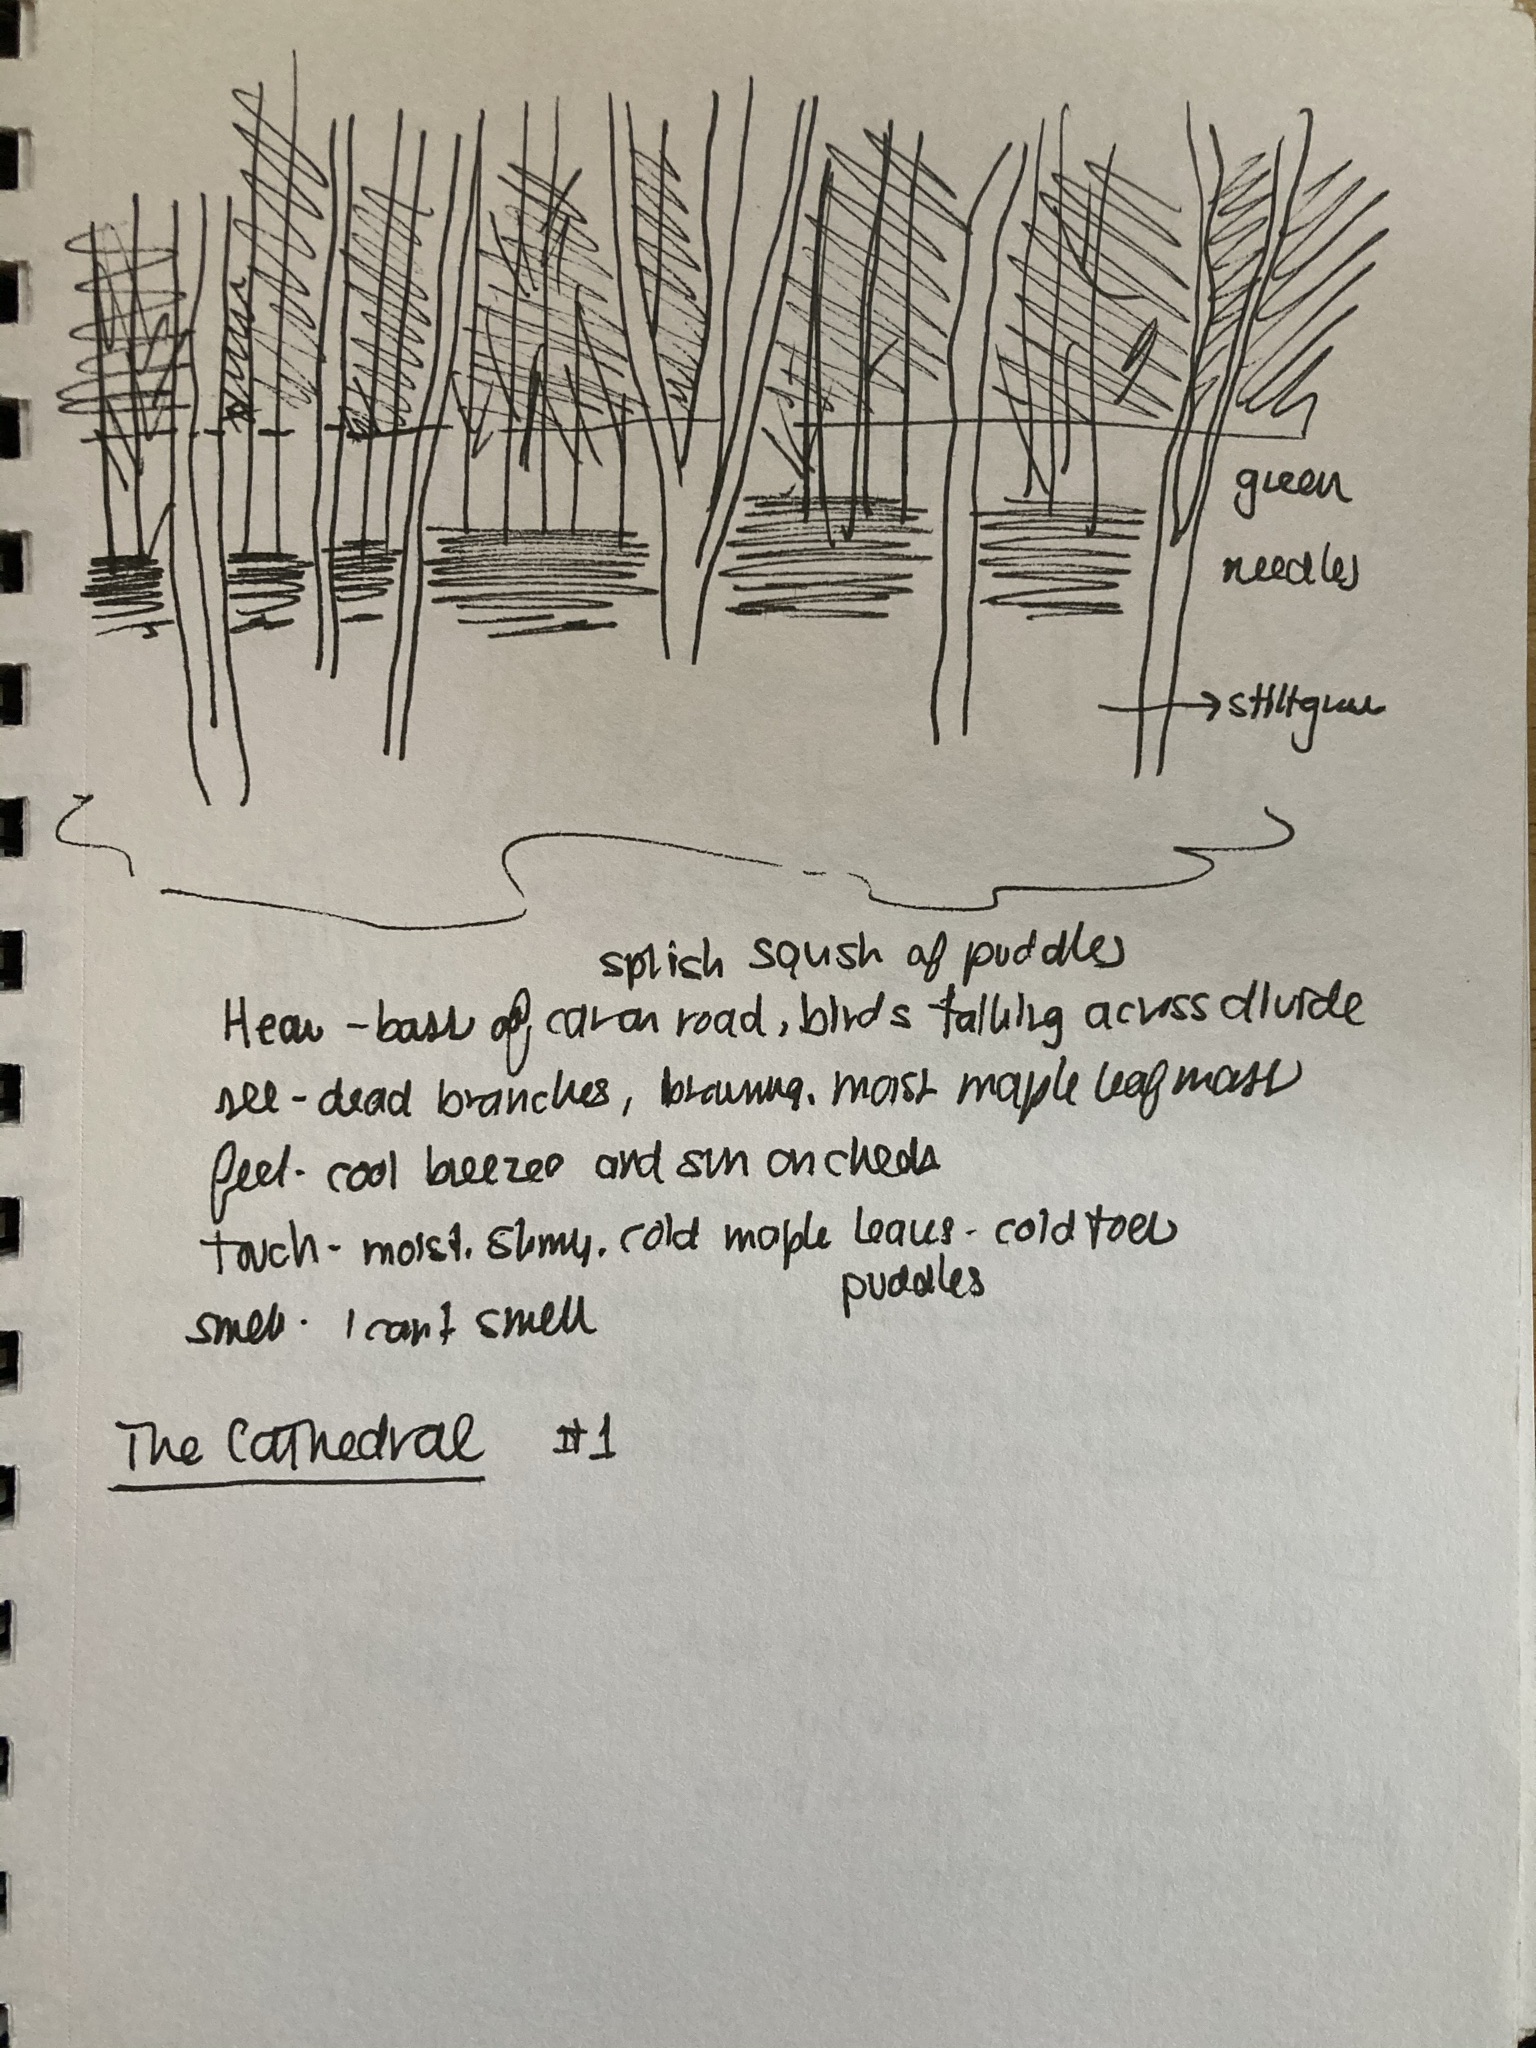 green
needles
stiltgrass
splish sqush of puddles
Hear - bass of car on road, birds talking across divide
see - dead branches, browning. moist maple leaf mass
feel - cool breezes and sun on cheeks
touch - moist. slimy. cold maple leaves - cold toes
puddles
smell - I can't smell
The Cathedral #1